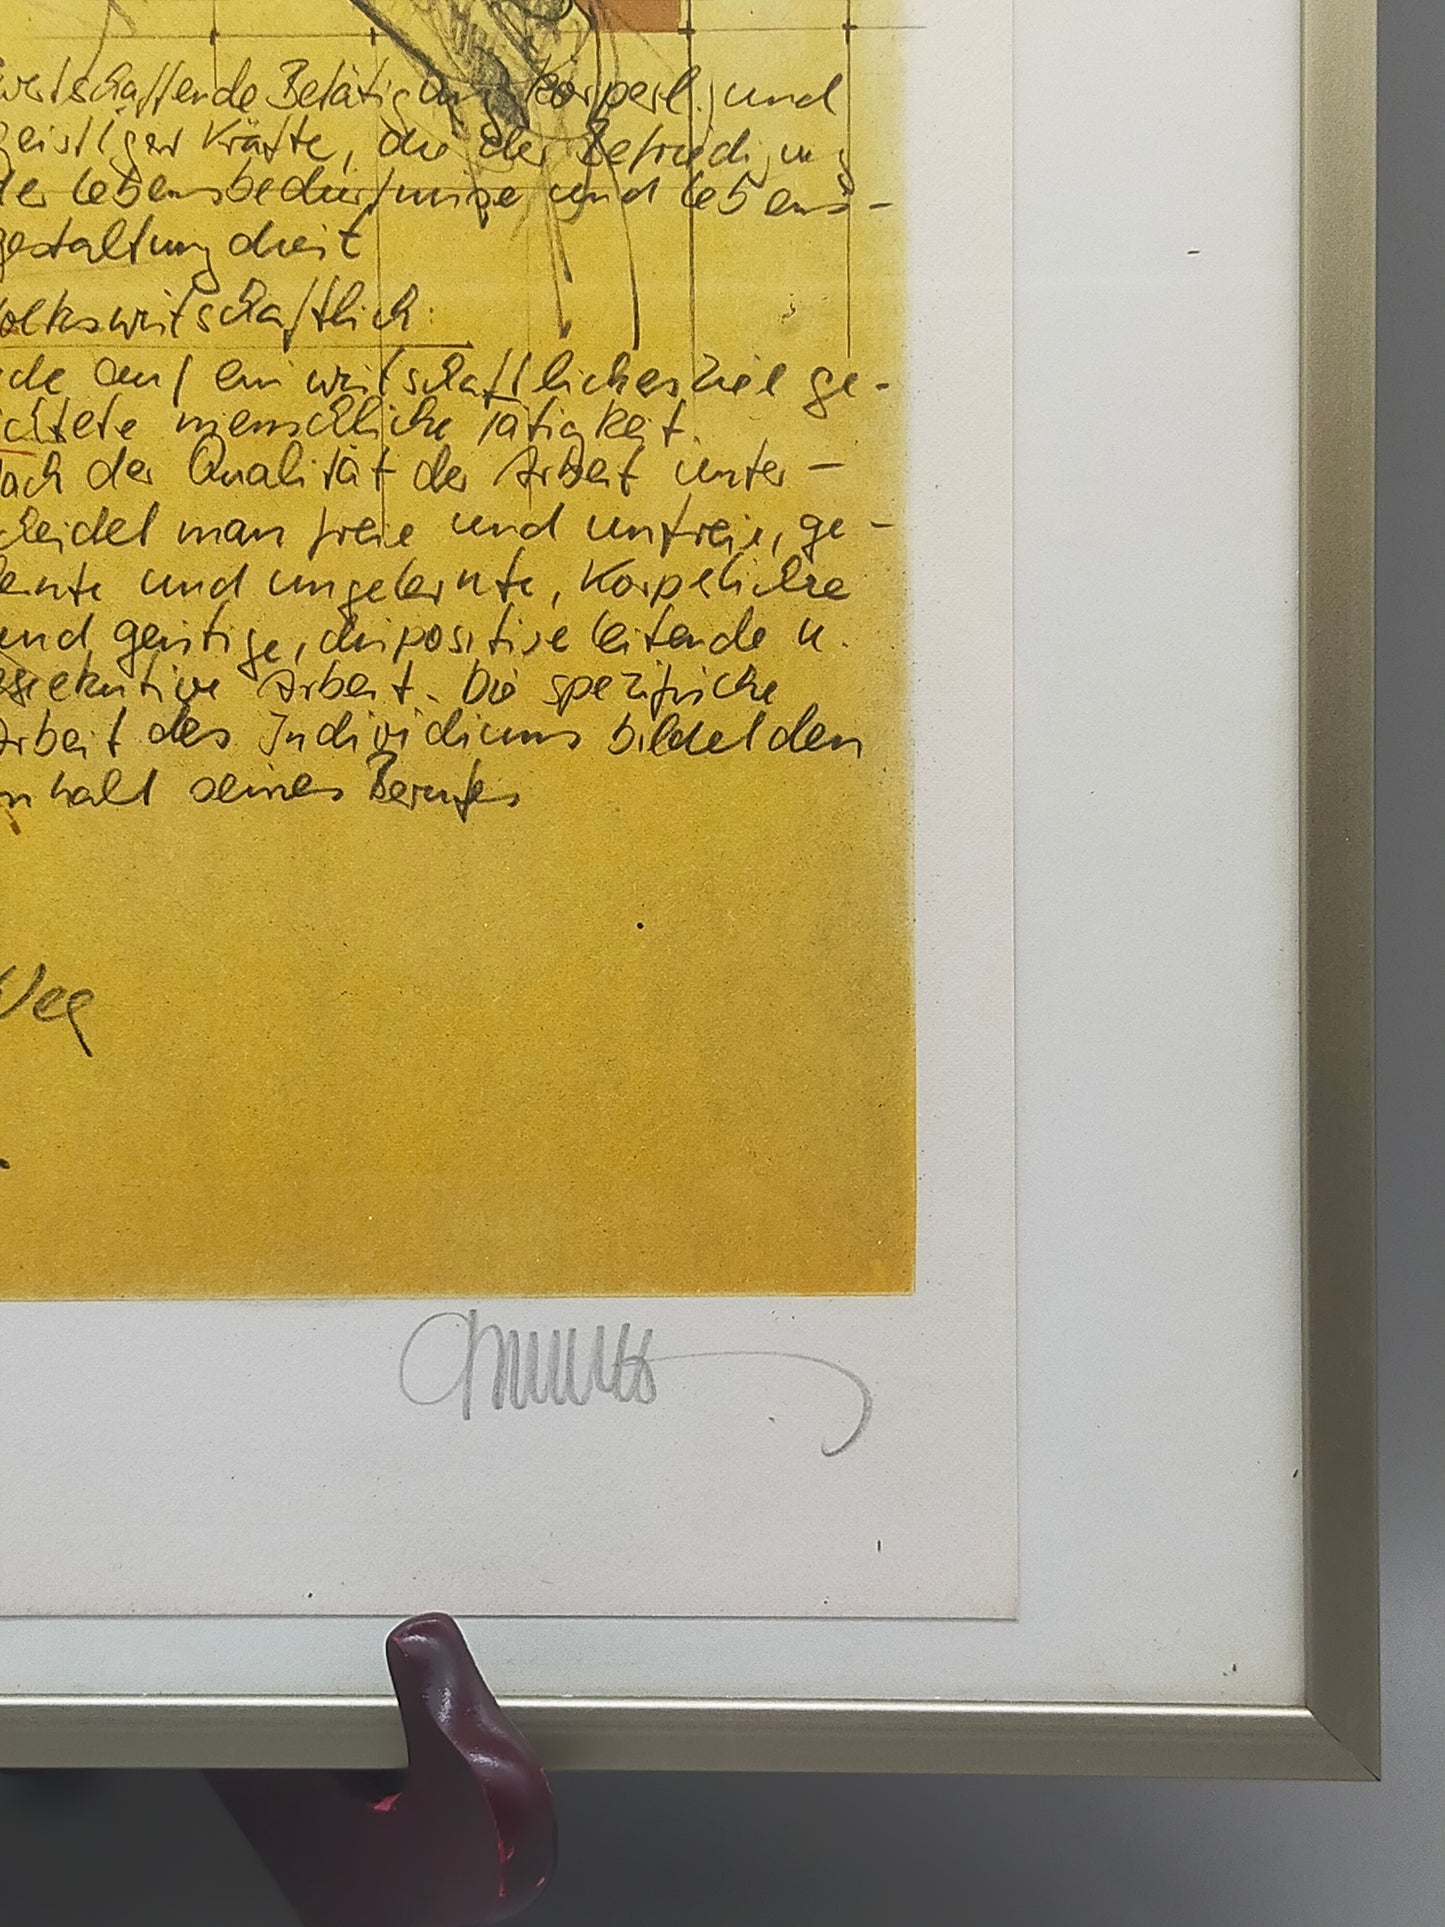 wertschaffende Betätigung körperl. und
geistiger Kräfte, die der Befriedigung
der Lebensbedürfnisse und Lebens-
gestaltung dient
volkswirtschaftlich:
jede auf ein wirtschaftliches Ziel ge-
ichtete menschliche Tätigkeit.
nach der Qualität der Arbeit unter-
cheidet man freie und unfreie, ge-
lernte und ungelernte, körperliche
und geistige, dispositive leitende u.
exekutive Arbeit. Die spezifische
Arbeit des Individiums bildet den
Inhalt seines Berufes